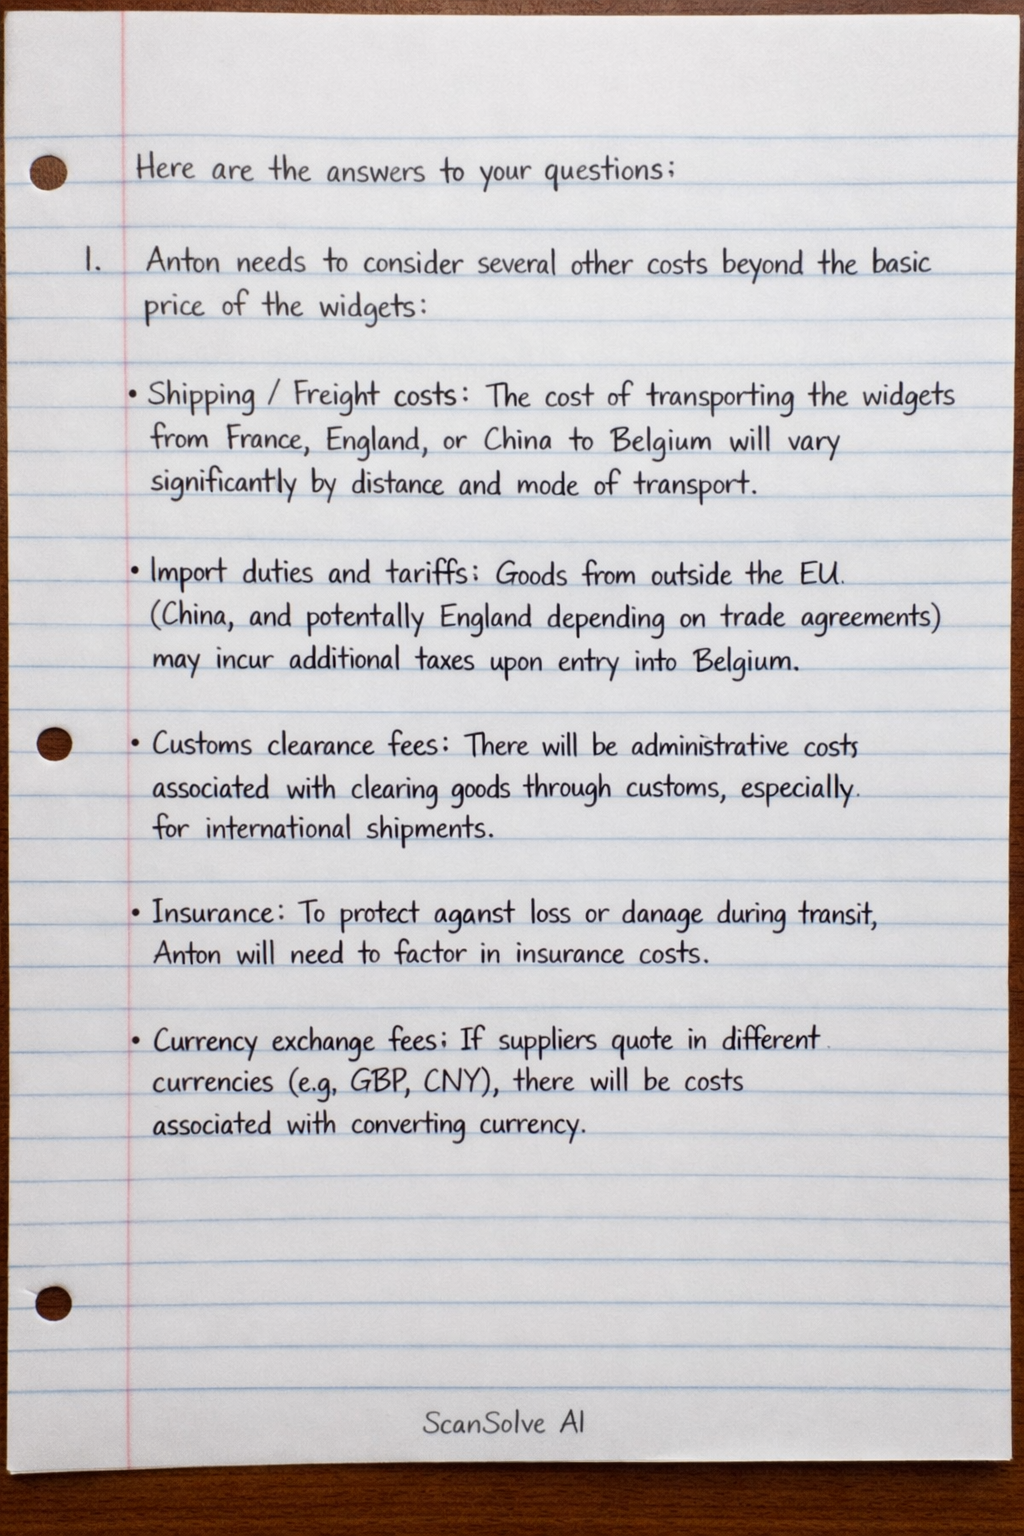 Here are the answers to your questions;
1. Anton needs to consider several other costs beyond the basic
price of the widgets:
• Shipping / Freight costs: The cost of transporting the widgets
from France, England, or China to Belgium will vary
significantly by distance and mode of transport.
• Import duties and tariffs; Goods from outside the EU.
(China, and potentally England depending on trade agreements)
may incur additional taxes upon entry into Belgium.
• Customs clearance fees: There will be administrative costs
associated with clearing goods through customs, especially.
for international shipments.
• Insurance: To protect aganst loss or danage during transit,
Anton will need to factor in insurance costs.
• Currency exchange fees; If suppliers quote in different.
currencies (e.g, GBP, CNY), there will be costs
associated with converting currency.
ScanSolve AI